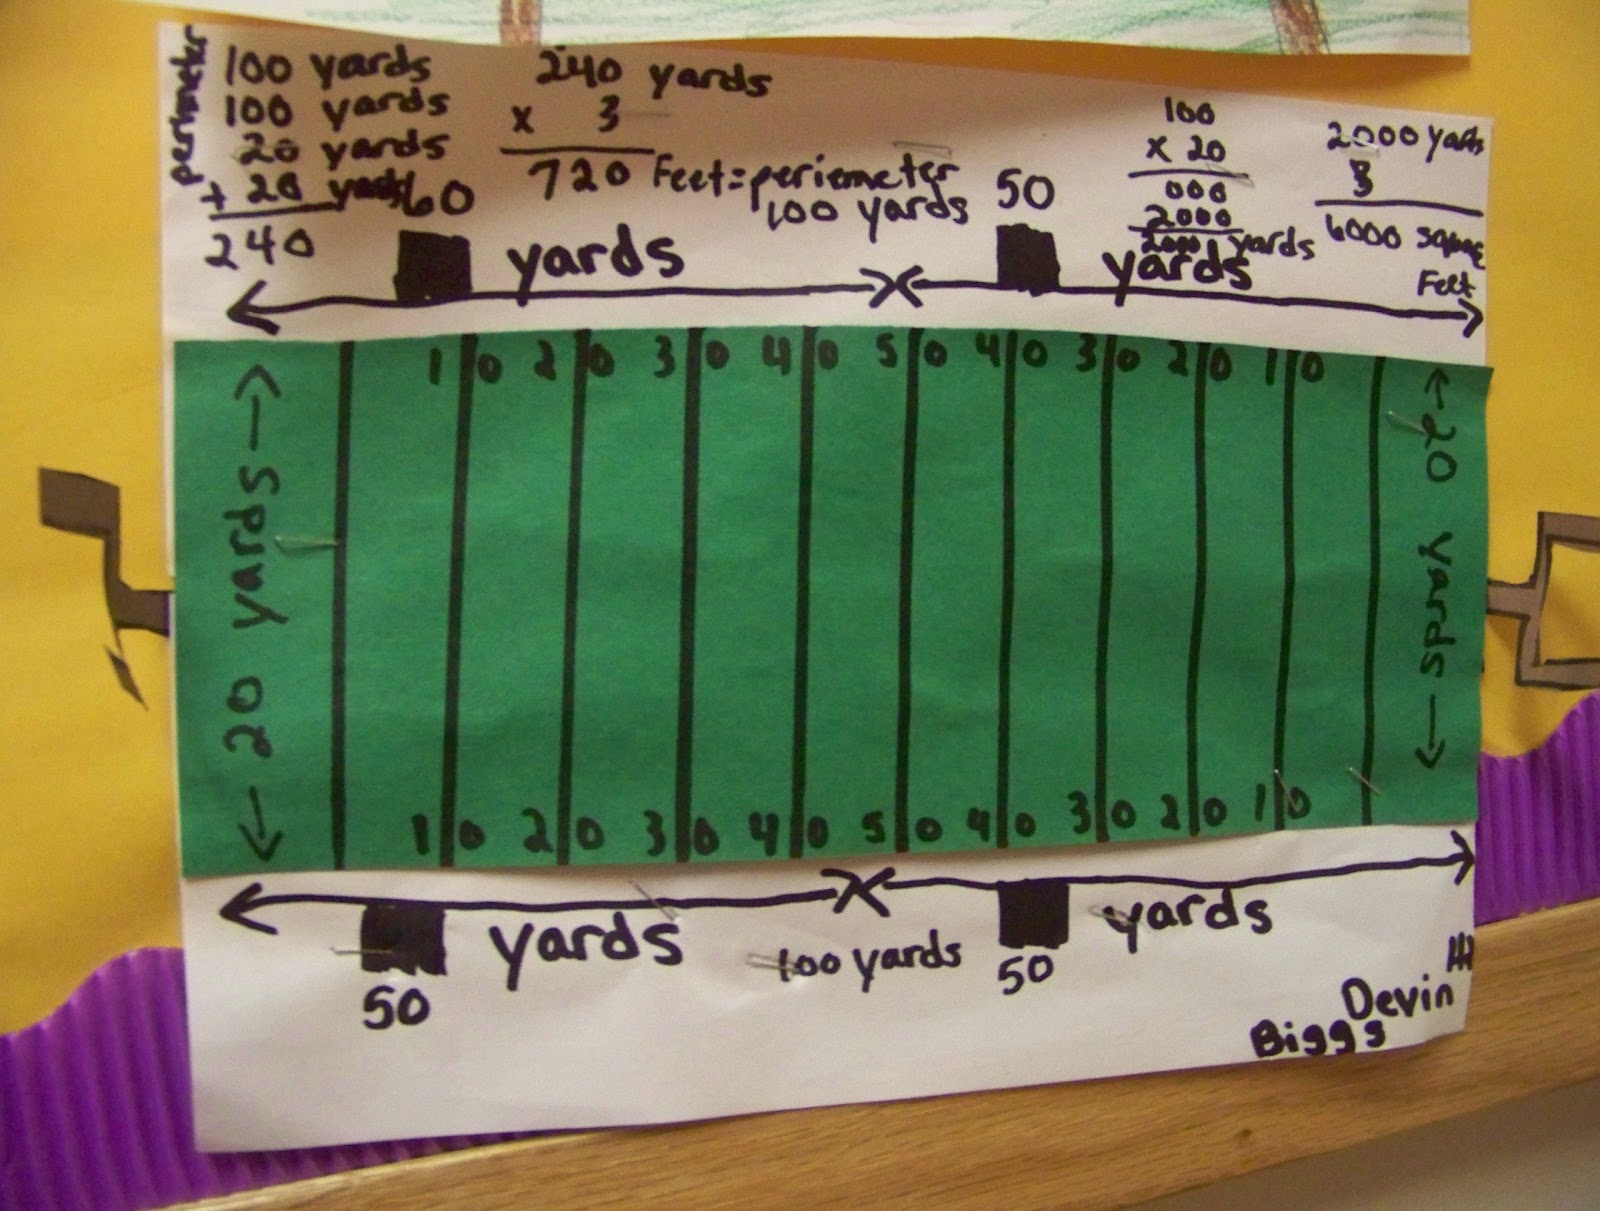 perimeter
100 yards
100 yards
20 yards
+ 20 yards
240
240 yards
x 3
720 Feet=periemeter
100
x 20
000
2000
2000 yards
2000 yards
3
6000 square
Feet
60 yards
100 yards
50 yards
1 0 2 0 3 0 4 0 5 0 4 0 3 0 2 0 1 0
20 yards
20 yards
1 0 2 0 3 0 4 0 5 0 4 0 3 0 2 0 1 0
50 yards
100 yards
50 yards
Devin
Biggs